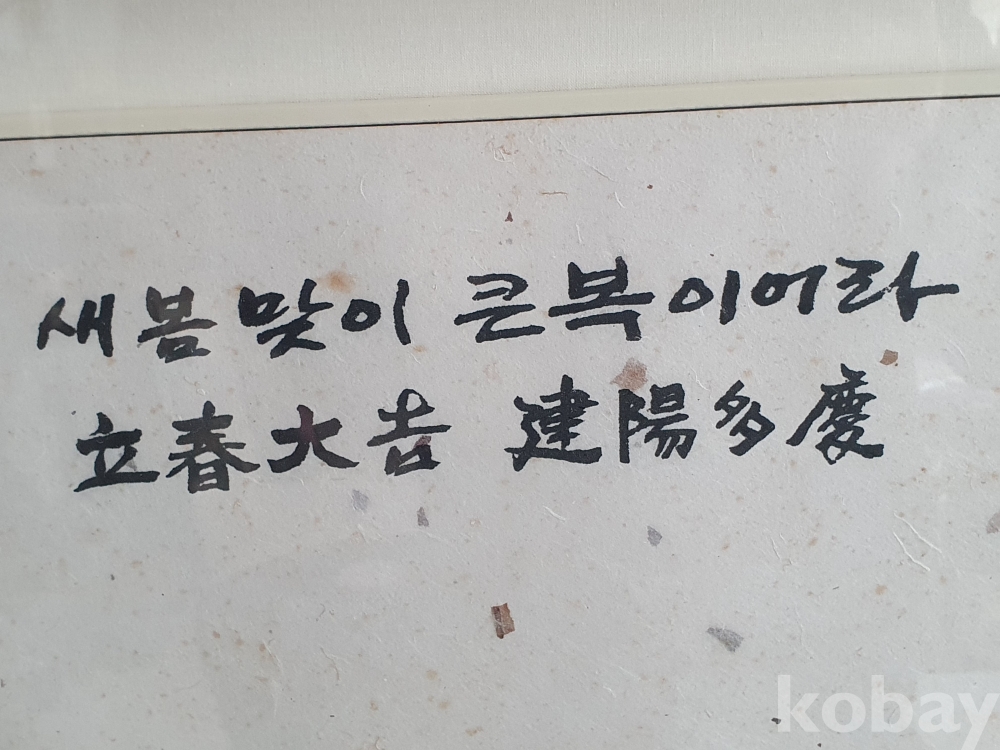 새봄맞이 큰복이어라
立春大吉 建陽多慶
kobay